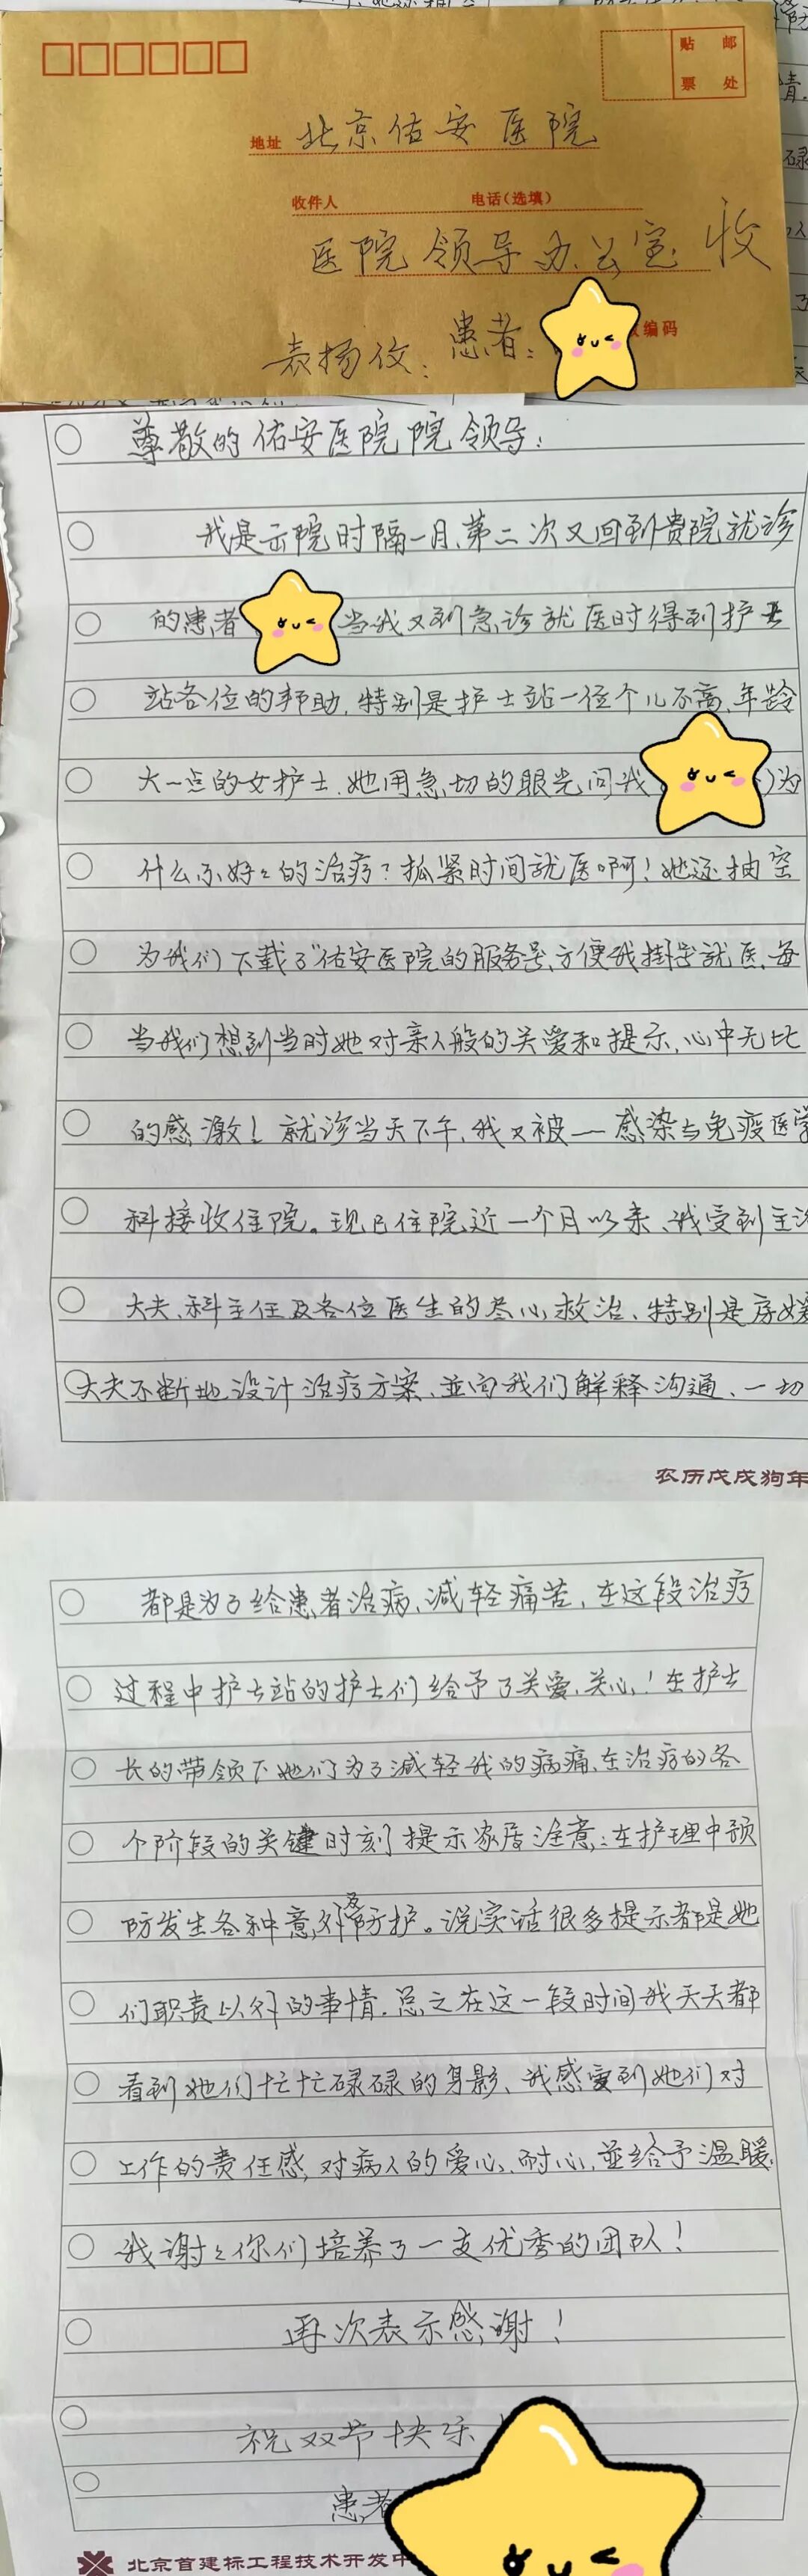 贴 邮
票 处
地址 北京佑安医院
收件人 电话(选填)
医院领导办公室 收
编码
表扬信: 患者:
尊敬的佑安医院院领导:
我是出院时隔一月、第二次又回到贵院就诊
的患者 当我又到急诊就医时得到护士
站各位的帮助,特别是护士站一位个儿不高,年龄
大一点的女护士,她用急切的眼光问我 )为
什么不好々的治疗?抓紧时间就医啊!她还抽空
为我们下载了“佑安医院的服务号,方便我挂号就医,每
当我们想到当时她对亲人般的关爱和提示,心中无比
的感激!就诊当天下午,我又被一感染与免疫医学
科接收住院。现已住院近一个月以来、我受到主治
大夫、科主任及各位医生的尽心救治、特别是
大夫不断地设计治疗方案、並向我们解释沟通、一切
农历戊戌狗年
都是为了给患者治病、减轻痛苦,在这段治疗
过程中护士站的护士们给予了关爱、关心!在护士
长的带领下她们为了减轻我的病痛、在治疗的各
个阶段的关键时刻提示家属注意;在护理中预
防发生各种意外及防护。说实话很多提示都是她
们职责以外的事情,总之在这一段时间我天天都
看到她们忙忙碌碌的身影、我感受到她们对
工作的责任感,对病人的爱心、耐心,並给予温暖,
我谢々你们培养了一支优秀的团队!
再次表示感谢!
祝双节快乐
患者
北京首建标工程技术开发中